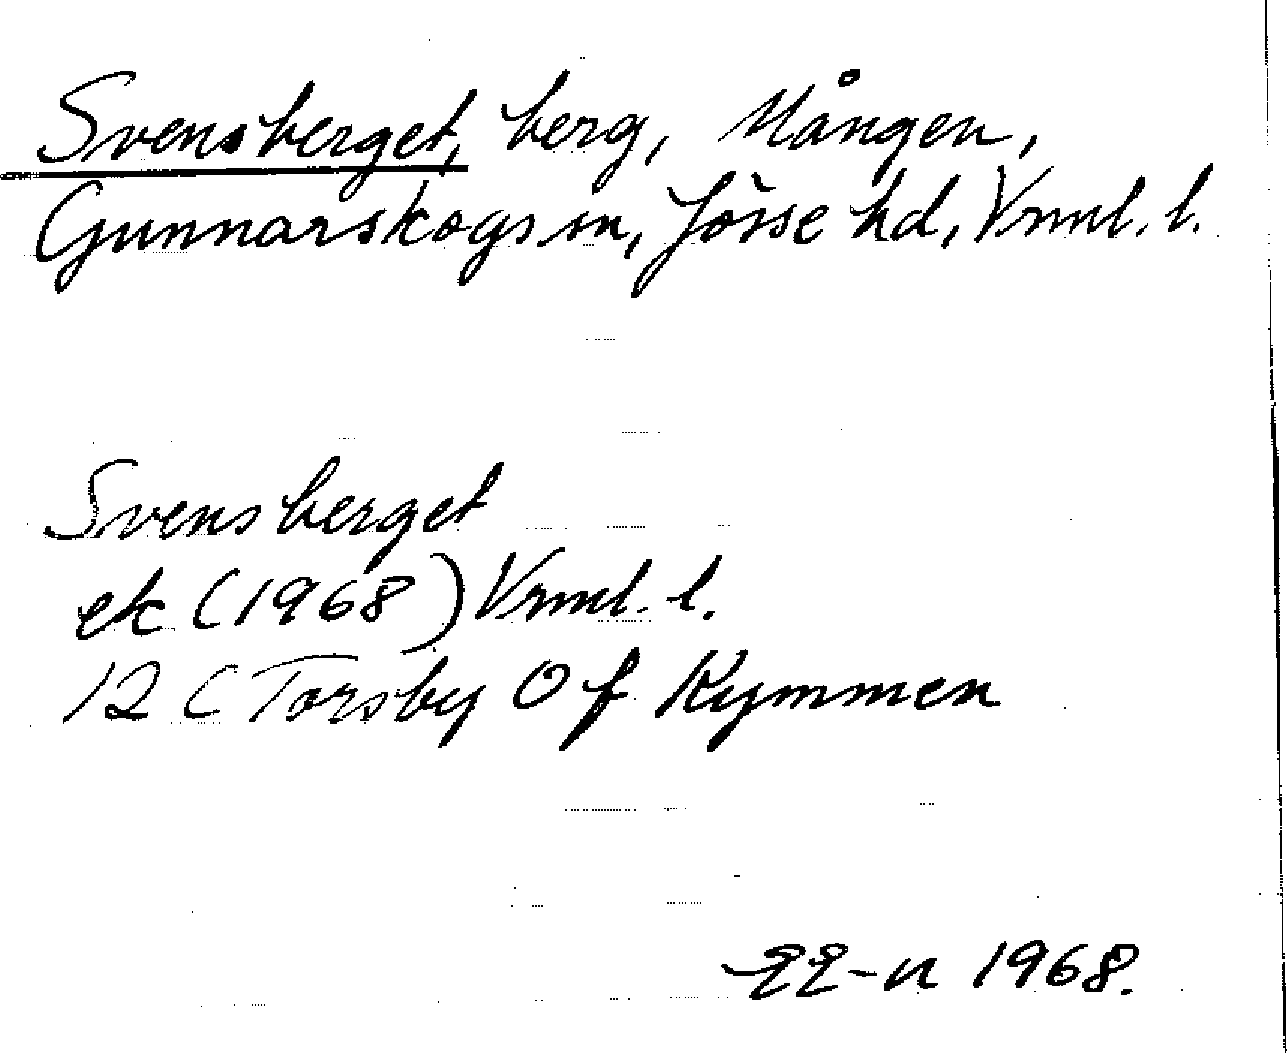 Svensberget, berg, Mången,
Gunnarskogs sn, Jösse hd, Vrml. l.
Svensberget
ek (1968) Vrml. l.
12 C Torsby 0 f Kymmen
1968.